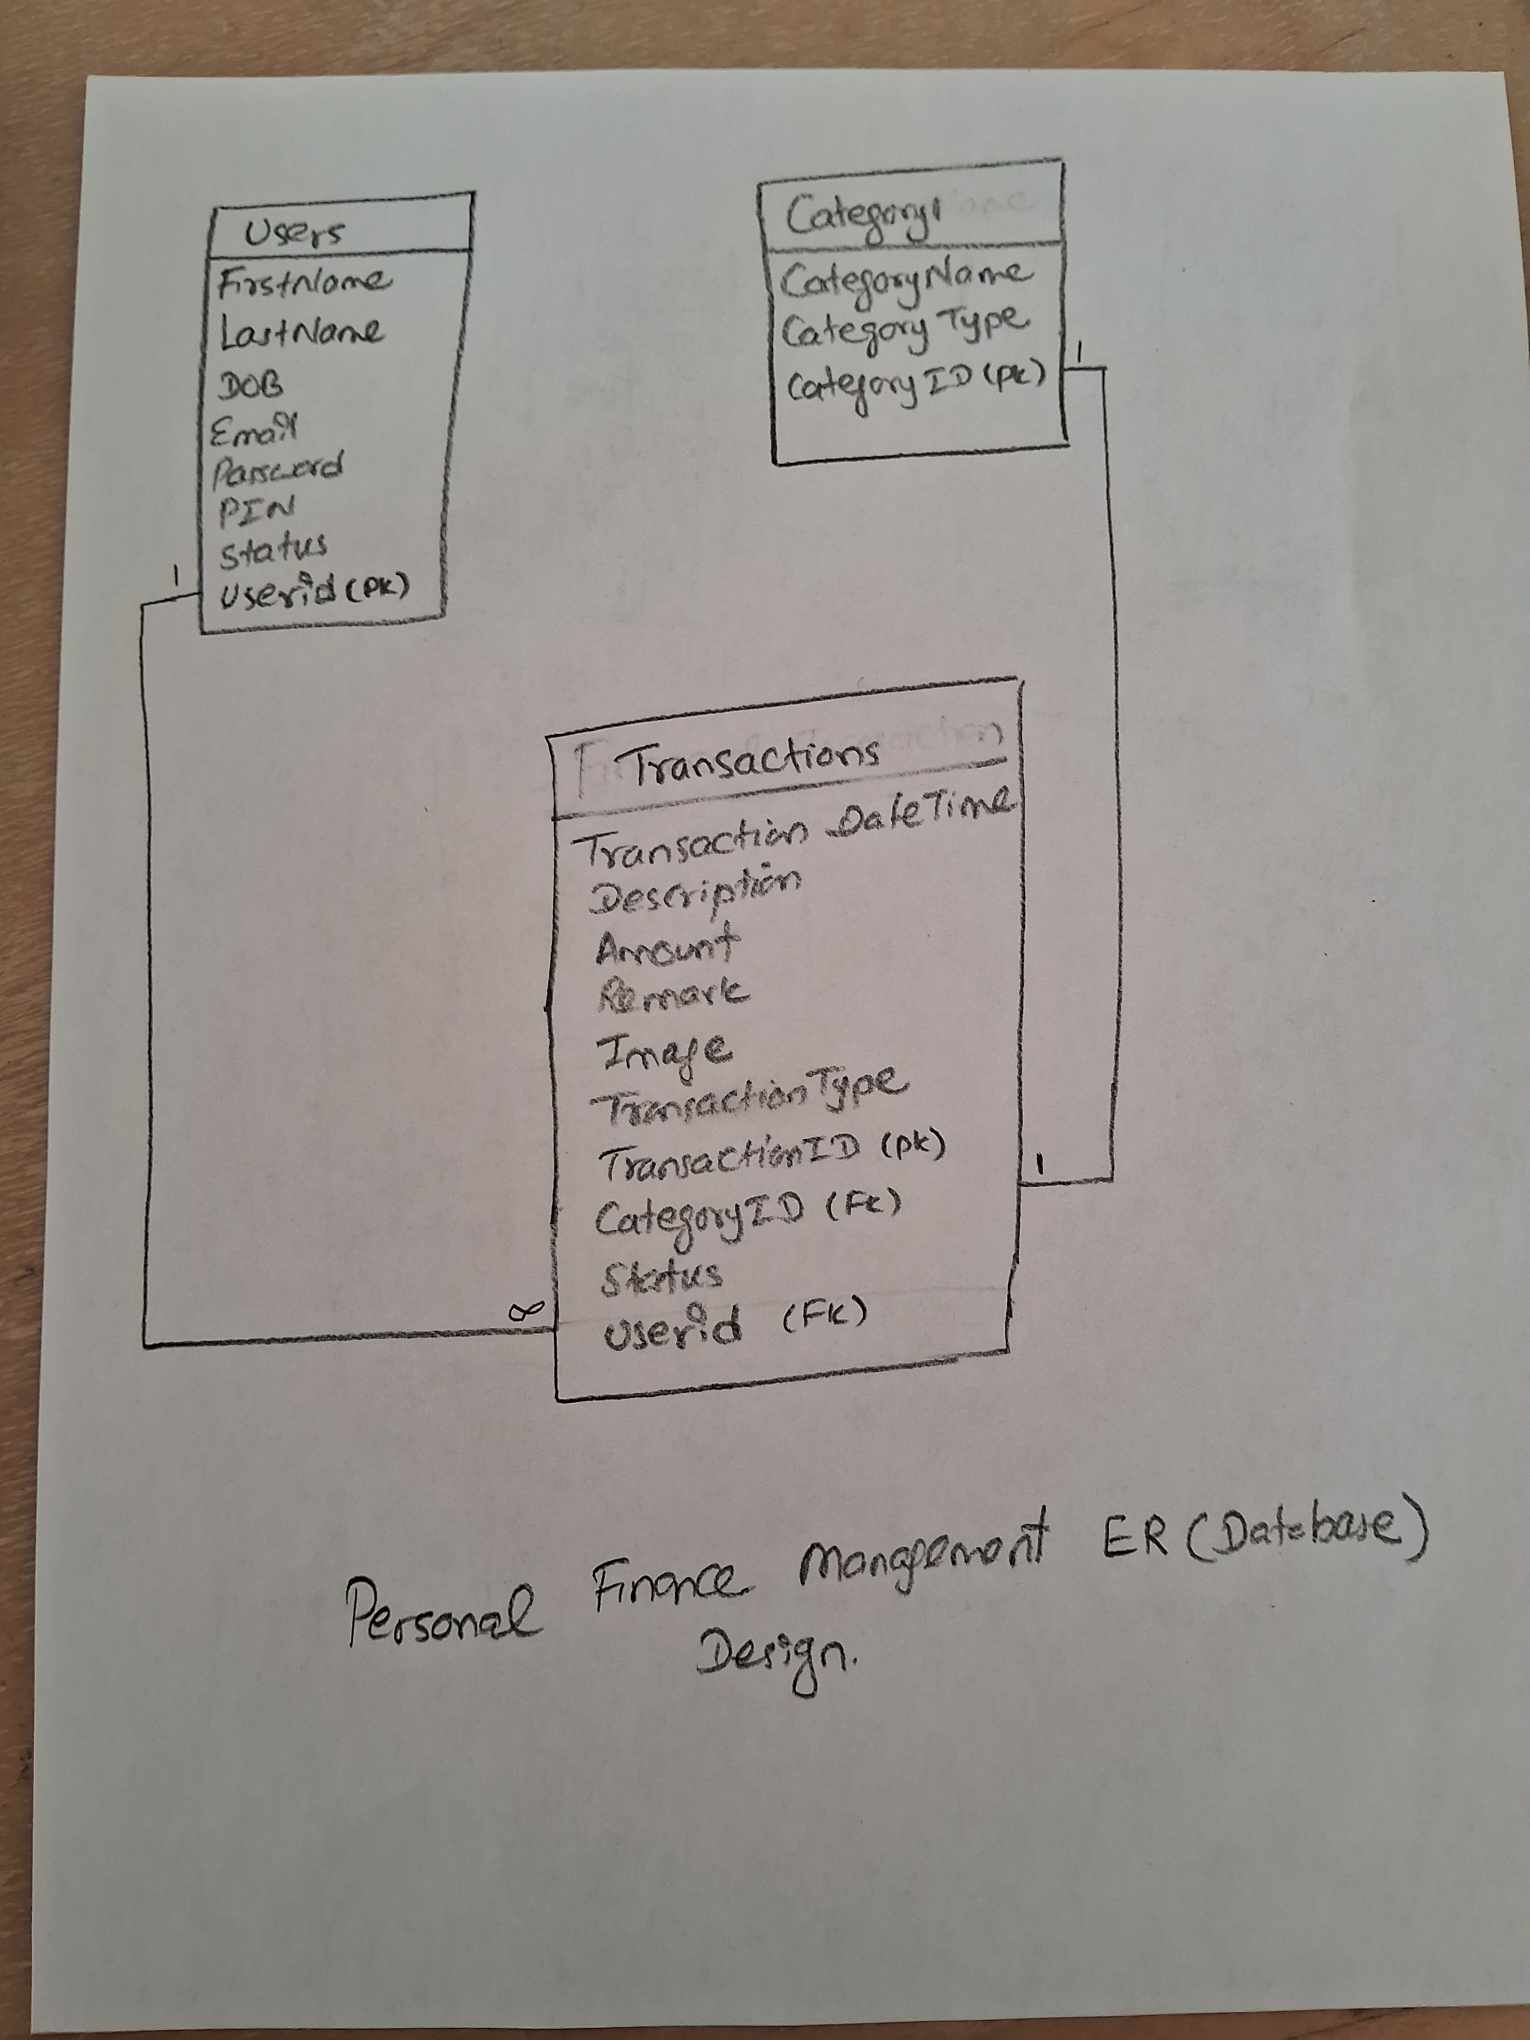 Users
FirstName
LastName
DOB
Email
Password
PIN
Status
Userid (PK)
1
Category
CategoryName
Category Type
Category ID (PK)
1
Transactions
Transaction DateTime
Description
Amount
Remark
Image
TransactionType
TransactionID (PK)
1
CategoryID (FK)
Status
∞
Userid (FK)
Personal Finance Management ER (Database)
Design.